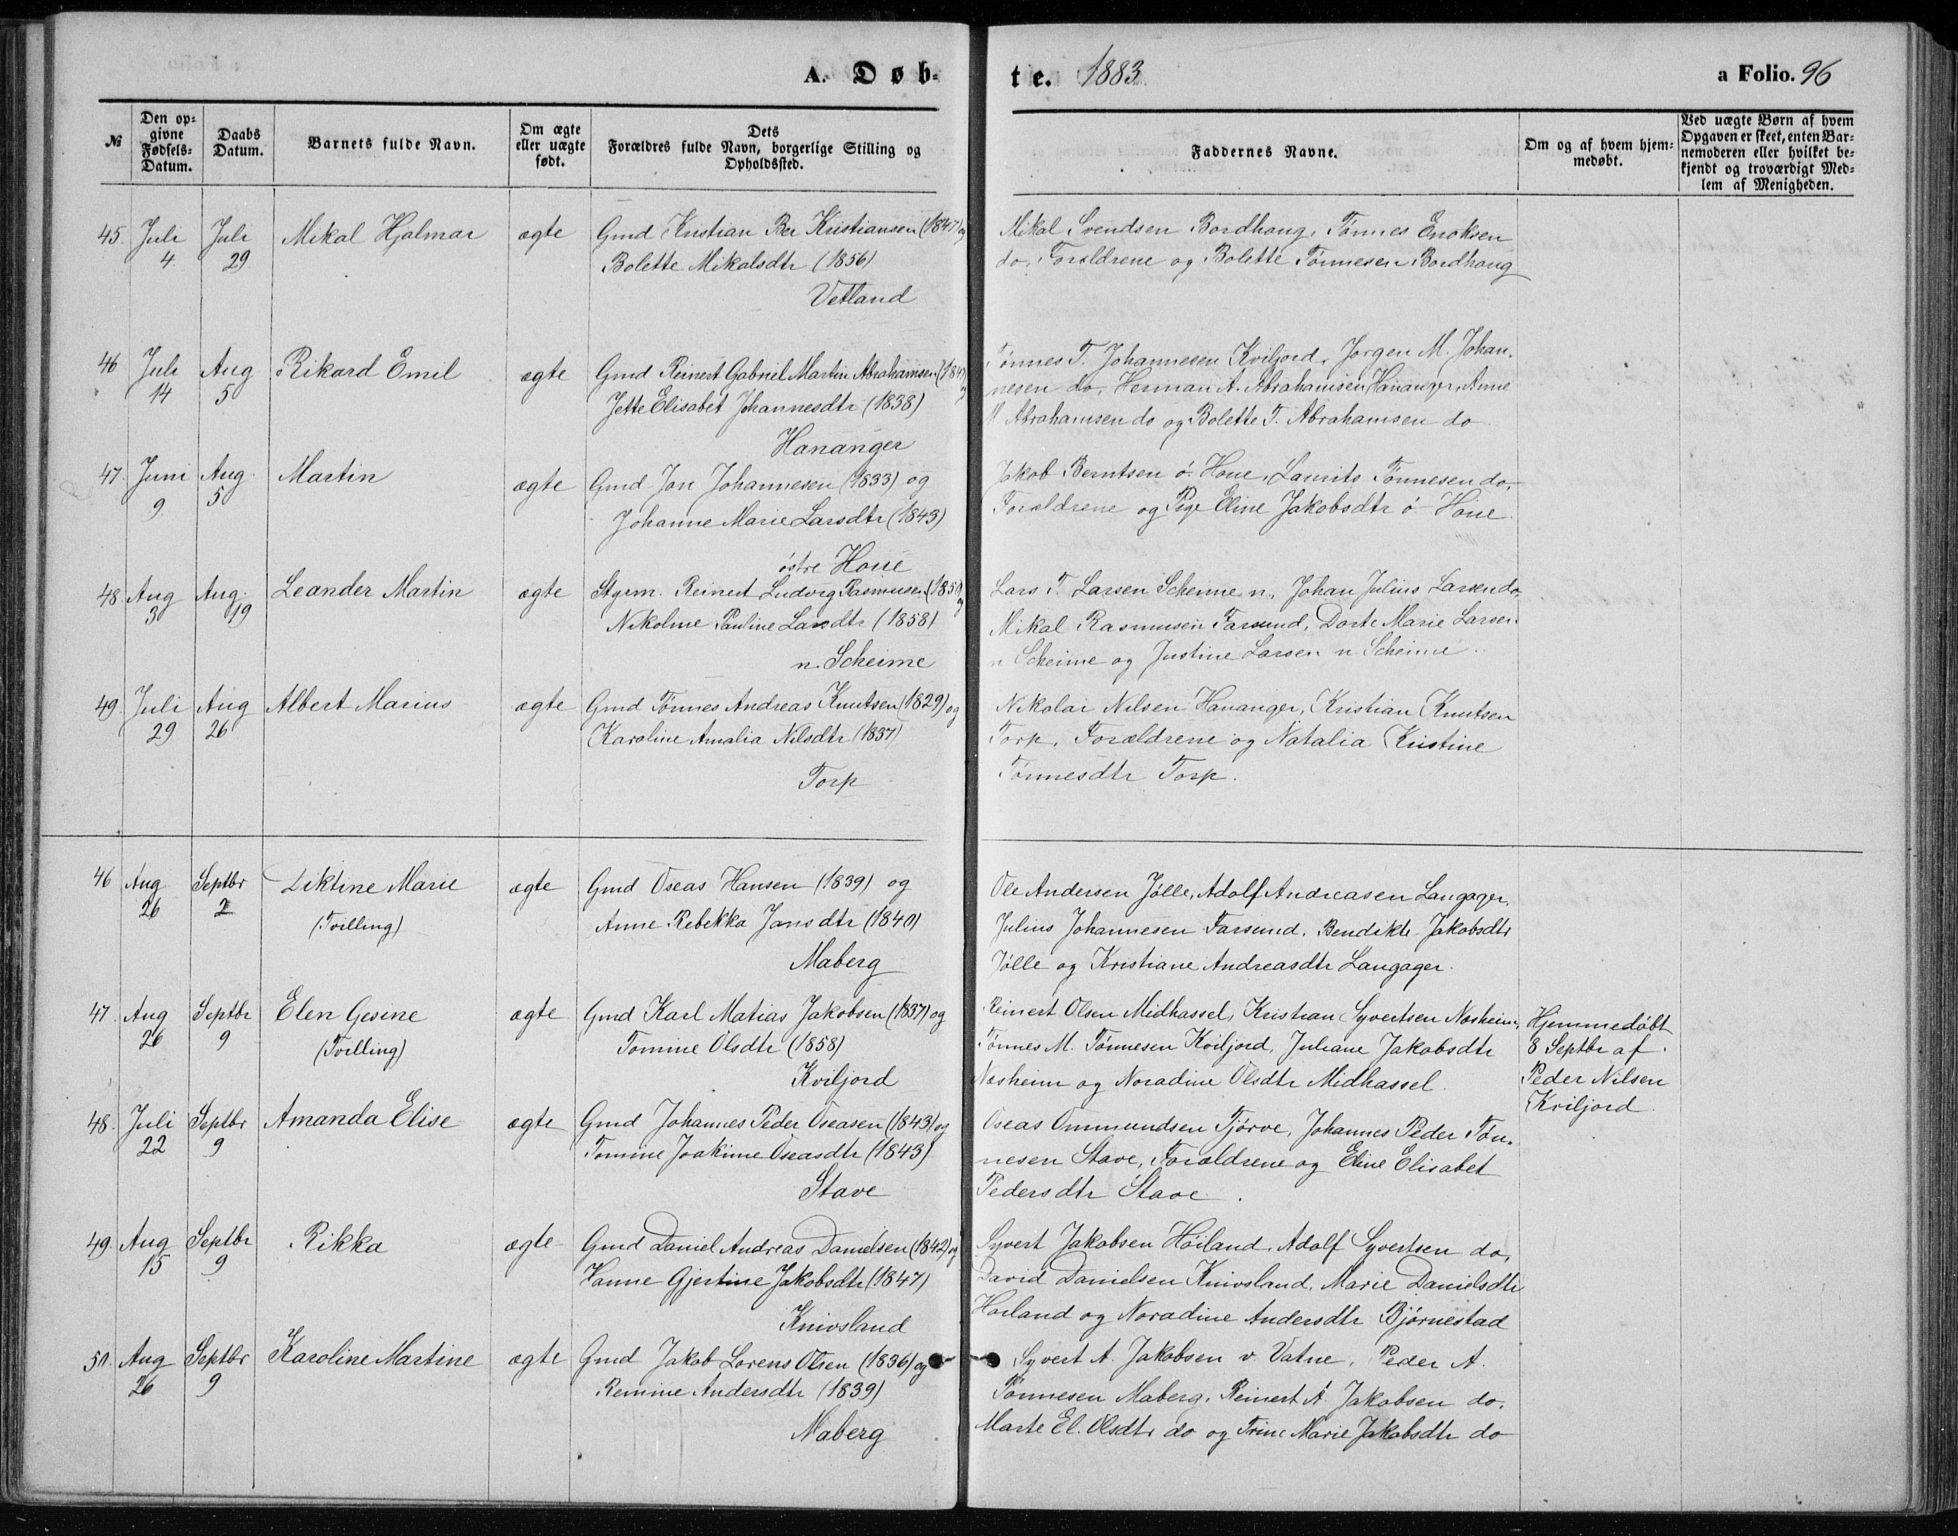 A. Døb-
te. 1883
a Folio. 96
№
Den op-
givne
Fødsels-
Datum.
Daabs
Datum.
Barnets fulde Navn.
Om ægte
eller uægte
født.
Dets
Forældres fulde Navn, borgerlige Stilling og
Opholdssted.
Faddernes Navne.
Om og af hvem hjem-
medøbt.
Ved uægte Børn af hvem
Opgaven er skeet, enten Bar-
nemoderen eller hvilket be-
kjendt og troværdigt Med-
lem af Menigheden.
45. Juli Juli Mikal Hjalmar ægte Gmd Kristian Ber Kristiansen (1847) og
4 29 Bolette Mikalsdtr (1856)
Vetland
Mikal Svendsen Bordhaug, Tønnes Enoksen
do, Forældrene og Bolette Tønnesen Bordhaug
46 Juli Aug Rikard Emil ægte Gmd Reinert Gabriel Martin Abrahamsen
14 5 Jette Elisabet Johannesdtr (1838)
Hananger
Tønnes T. Johannesen Kviljord, Jørgen M. Johan-
nesen do, Herman A. Abrahamsen Hananger, Anne
Abrahamsen do og Bolette T. Abrahamsen do
47. Juni Aug. Martin ægte Gmd Jon Johannesen (1833) og
9 5 Johanne Marie Larsdtr (1843)
østre Houe
Jakob Berntsen ø Houe, Laurits Tønnesen do,
Forældrene og Pige Eline Jakobsdtr ø Houe.
48. Aug Aug. Leander Martin ægte Styrm. Reinert Ludvig Rasmusen
3 19 Nikoline Pauline Larsdtr (1858)
n. Scheime
Lars T. Larsen Scheime n, Johan Julius Larsen do,
Mikal Rasmusen Farsund, Dorte Marie Larsen
n Scheime og Justine Larsen n Scheime.
49. Juli Aug Albert Marius ægte Gmd Tønnes Andreas Knutsen (1829) og
29 26 Karoline Amalia Nilsdtr (1837)
Torp
Nikolai Nilsen Hananger, Kristian Knutsen
Torp, Forældrene og Natalia Kristine
Tønnesdtr Torp.
46 Aug Septbr Marie ægte Gmd Oseas Hansen (1839) og
26 2 (Tvilling) Anne Rebekka Jansdtr (1840)
Maberg
Ole Andersen Jølle, Adolf Andreasen Langager,
Julius Johannesen Farsund, Bendikte Jakobsdtr
Jølle og Kristiane Andreasdtr Langager.
47. Aug Septbr Elen Gesine ægte Gmd Karl Matias Jakobsen (1837) og
26 9 (Tvilling) Tomine Olsdtr (1858)
Kviljord
Reinert Olsen Midhassel, Kristian Syvertsen Næsheim,
Tønnes M. Tønnesen Kviljord, Juliane Jakobsdtr
Næsheim og Noradine Olsdtr Midhassel.
Hjemmedøbt
8 Septbr af
Peder Nilsen
Kviljord.
48. Juli Septbr Amanda Elise ægte Gmd Johannes Peder Oseasen (1843) og
22 9 Tomine Joakime Oseasdtr (1843)
Stave
Oseas Ommundsen Tjørve, Johannes Peder Tøn-
nesen Stave, Forældrene og Eline Elisabet
Pedersdtr Stave.
49. Aug Septbr Rikka ægte Gmd Daniel Andreas Danielsen (1842) og
15 9 Hanne Gjertine Jakobsdtr (1847)
Knivsland
Syvert Jakobsen Høiland, Adolf Syvertsen do,
David Danielsen Knivsland, Marie Danielsdtr
Høiland og Noradine Andersdtr Bjørnestad
50. Aug Septbr Karoline Martine ægte Gmd Jakob Lorens Olsen (1836) og
26 9 Remine Andersdtr (1839)
Maberg
Syvert A. Jakobsen v Vatne, Peder A.
Tønnesen Maberg, Reinert A. Jakobsen do,
Marte El. Olsdtr do og Trine Marie Jakobsdtr do